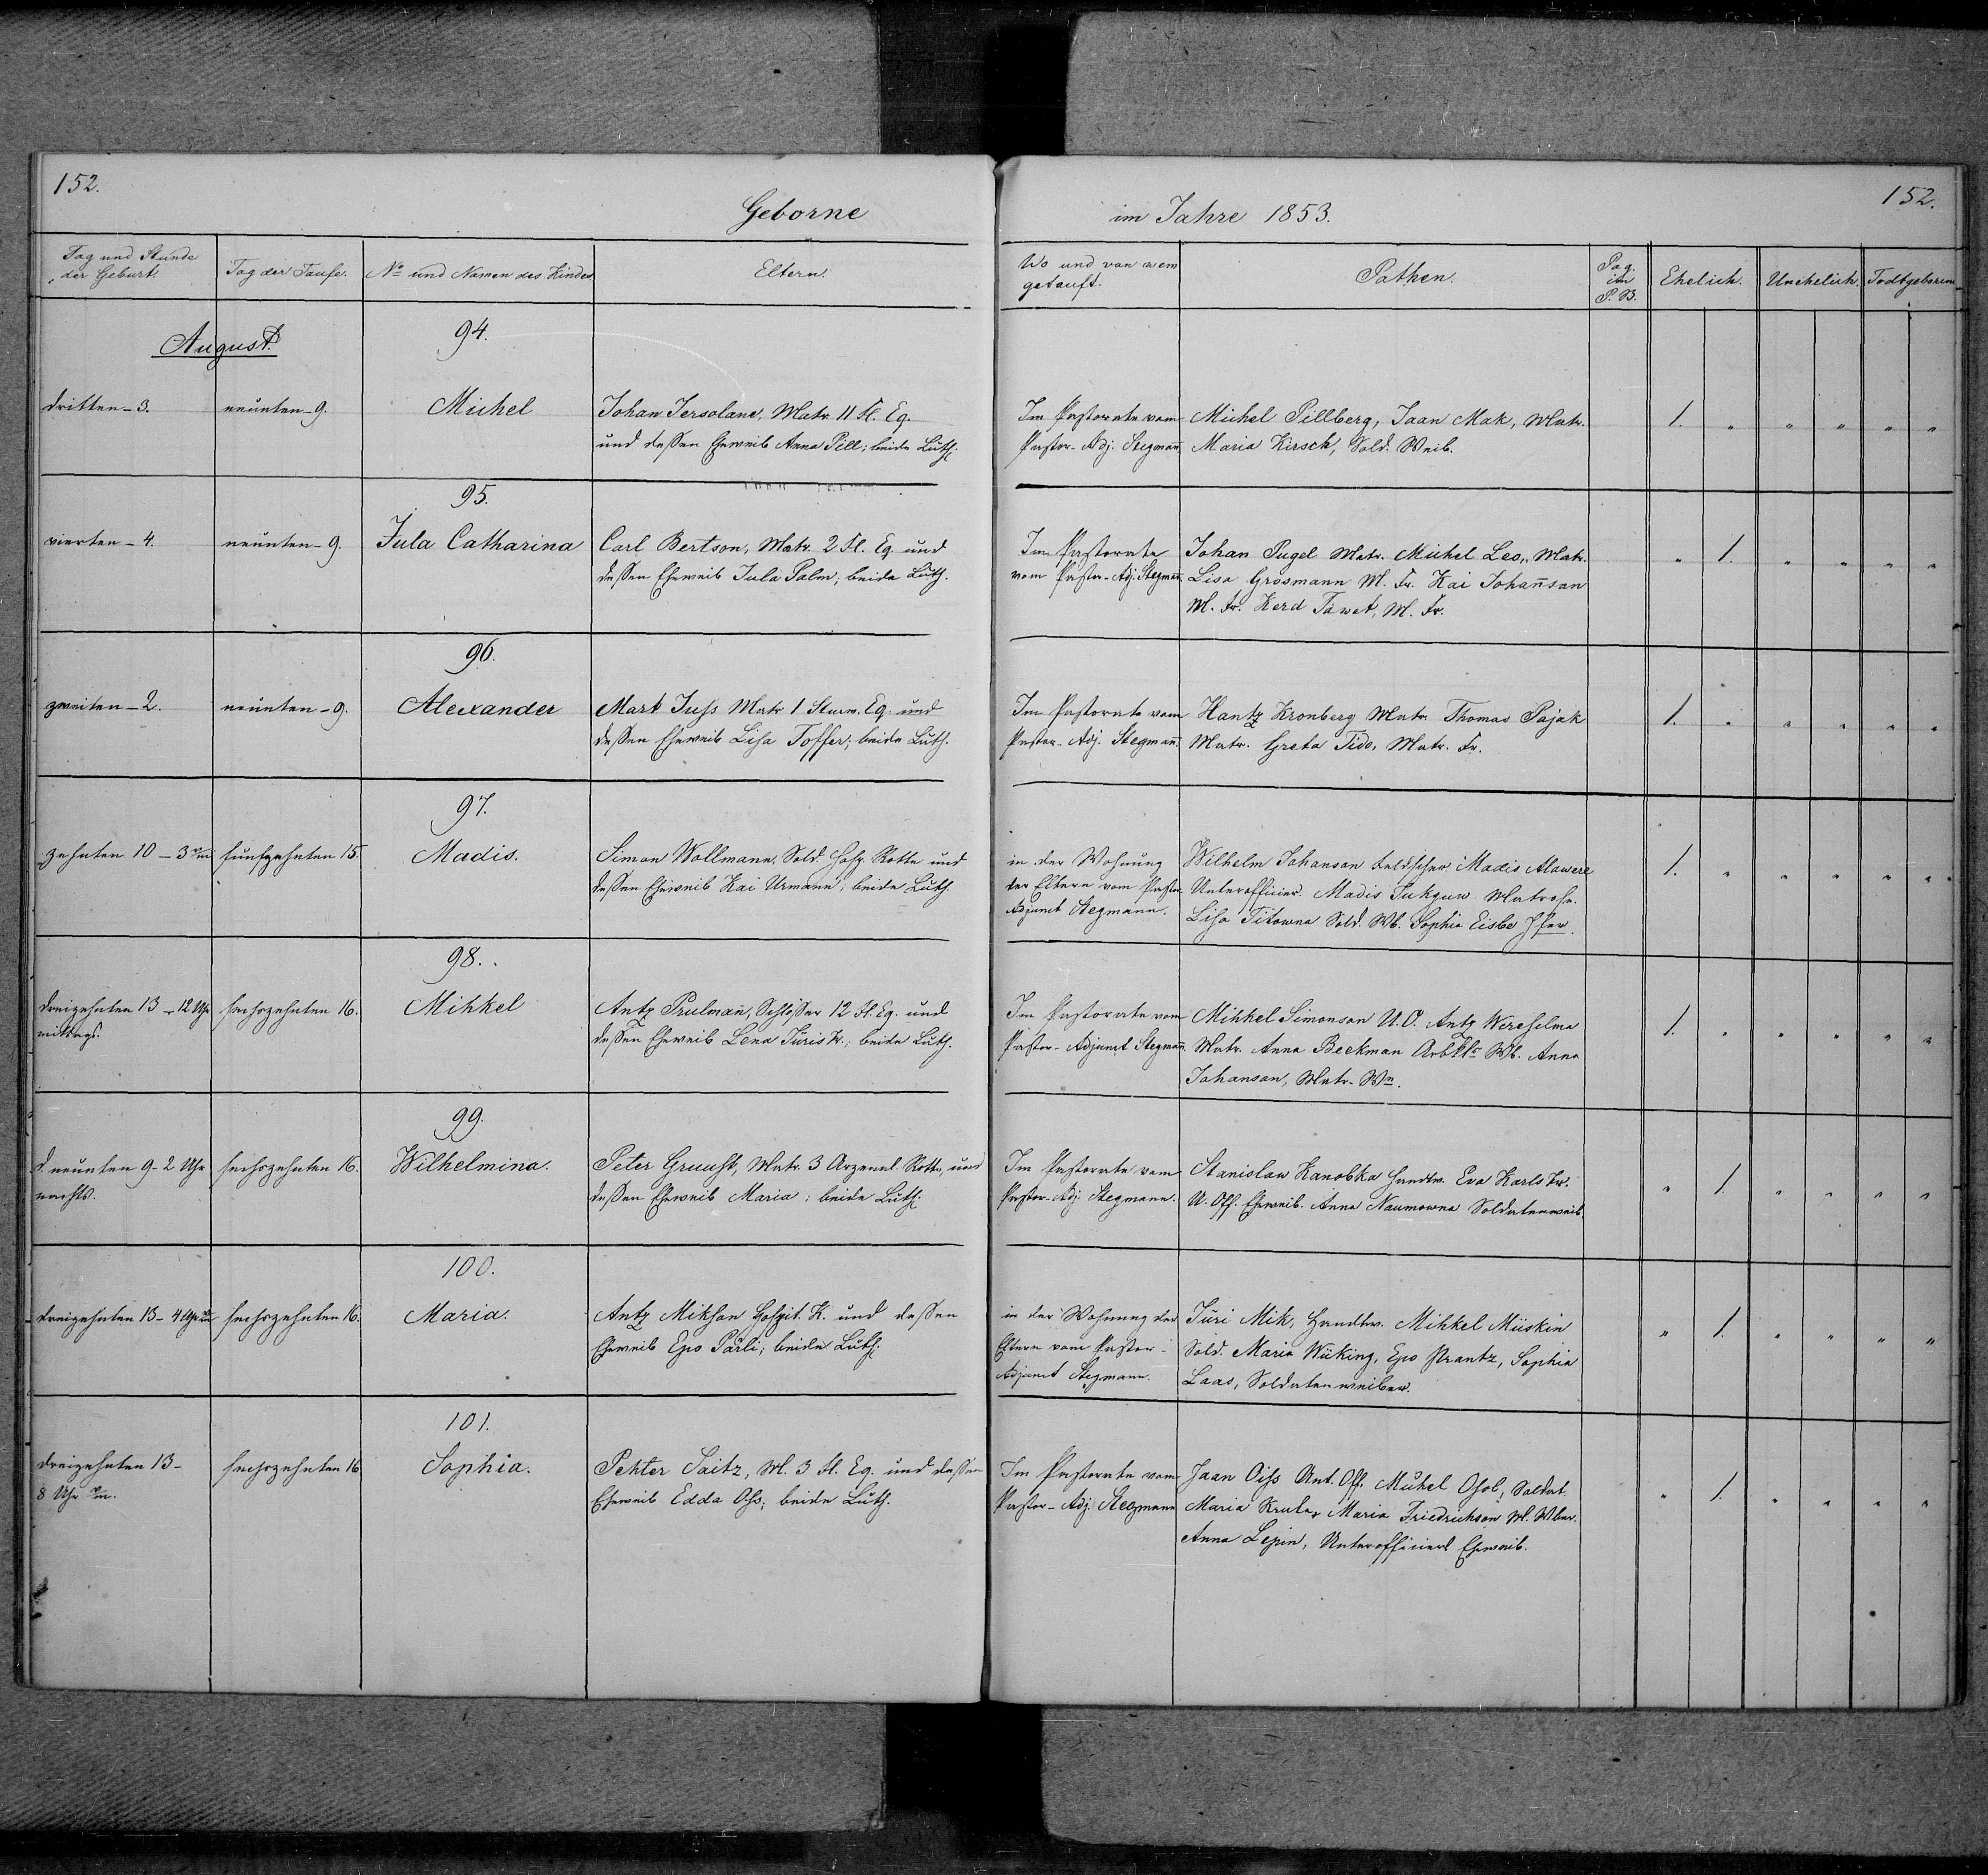 152.
Geborne
im Jahre 1853.
152.
Tag und Stunde
der Geburt.
Tag der Taufe.
No und Namen des Kindes
Eltern.
Wo und von wem
getauft.
Pathen.
Pag.
im
P. B.
Ehelich.
Unehelich.
Todtgeboren
August.
94.
dritten - 3.
neunten - 9.
Michel
Johan Jersolane, Matr. 11 Fl. Eq.
und dessen Eheweib Anna Pill; beide Luth.
Im Pastorate vom
Pastor-Adj. Stegmañ
Michel Pillberg, Jaan Mak, Matr.
Maria Kirsch, Sold. Weib.
1. " " " " "
95.
vierten - 4.
neunten - 9.
Jula Catharina
Carl Bertson, Matr. 2 Fl. Eq. und
dessen Eheweib Jula Palm; beide Luth.
Im Pastorate
vom Pastor-Adj. Stegmañ.
Johan Pugel Matr. Michel Leo, Matr.
Lisa Grosmann M. Fr. Kai Johañson
M. Fr. Kerd Tawet, M. Fr.
" 1. " " " "
96.
zweiten - 2.
neunten - 9.
Alexander
Mart Juss Matr. 1 Eq. und
dessen Eheweib Lisa Toffer; beide Luth.
Im Pastorate vom
Pastor-Adj. Stegmañ.
Hantz Kronberg Matr. Thomas Pajak
Matr. Greta Tido, Matr. Fr.
1. " " " " "
97.
zehnten 10 - 3
funfzehnten 15.
Madis.
Simon Wollmann, Sold. Rotte und
dessen Eheweib Kai Urmann; beide Luth.
in der Wohnung
der Eltern vom Pastor
Adjunct Stegmann.
Wilhelm Johanson Feldscher Madis Alawere
Unterofficier Madis Tukguw Matrose.
Lisa Titowna Sold. Wb. Sophia Eisbe
1. " " " " "
98.
dreizehnten 13 - 12 Uhr
mittags.
sechszehnten 16.
Mihkel
Antz Prulmañ, Schlosser 12 Fl. Eq. und
dessen Eheweib Lena Juris Tr.; beide Luth.
Im Pastorate vom
Pastor-Adjunct Stegmañ.
Mihkel Simonson U.O. Antz Wereselma
Matr. Anna Beekman Wb. Anna
Johanson, Matr. Wn.
1. " " " " "
99.
d. neunten 9 - 2 Uhr
nachts.
sechszehnten 16.
Wilhelmina.
Peter Gruust, Matr. 3 Arzenal. Rotte, und
dessen Eheweib Maria; beide Luth.
Im Pastorate vom
Pastor-Adj. Stegmann.
Stanislaw Kanobka Handtw. Eva Karls Tr.
U. Off. Eheweib. Anna Naumowna Soldatenweib.
" 1. " " " "
100.
dreizehnten 13 - 4 Uhr
sechszehnten 16.
Maria.
Antz Mikson Hospit. K. und dessen
Eheweib Epo Pärli; beide Luth.
in der Wohnung der
Eltern vom Pastor-
Adjunct Stegmann.
Jüri Mik, Handtw. Mihkel Müskin
Sold. Maria Wiking, Epo Prantz, Sophia
Laas, Soldatenweiber.
" 1. " " " "
101.
dreizehnten 13 -
8 Uhr
sechszehnten 16
Sophia.
Pehter Saitz, M. 3 Fl. Eq. und dessen
Eheweib Edda Oss; beide Luth.
Im Pastorate vom
Pastor-Adj. Stegmann
Jaan Oiss Unt. Off. Michel Osol, Soldat.
Maria Krula, Maria Friedrichson M. Wber.
Anna Lepin, Unterofficiers Eheweib.
" 1. " " " "